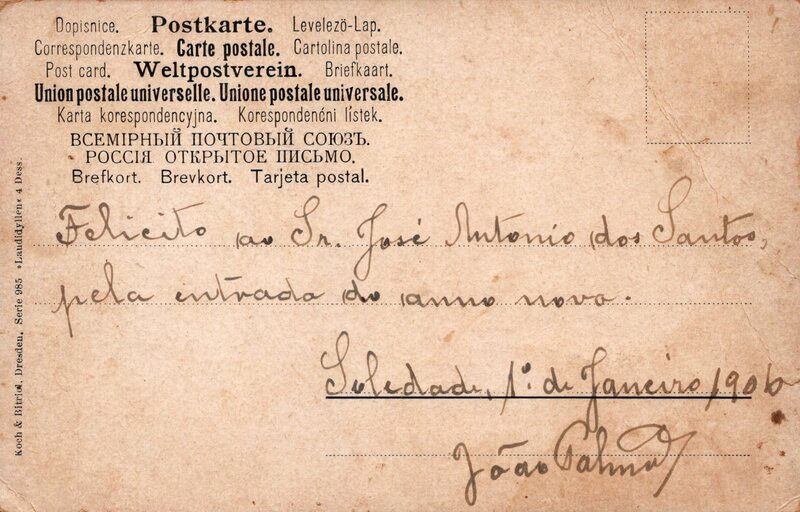 Dopisnice. Postkarte. Levelező-Lap.
Correspondenzkarte. Carte postale. Cartolina postale.
Post card. Weltpostverein. Briefkaart.
Union postale universelle. Unione postale universale.
Karta korespondencyjna. Korespondenční lístek.
ВСЕМІРНЫЙ ПОЧТОВЫЙ СОЮЗЪ.
РОССІЯ ОТКРЫТОЕ ПИСЬМО.
Brefkort. Brevkort. Tarjeta postal.
Felicito ao Sr. José Antonio dos Santos,
pela entrada do anno novo.
Soledade, 1º de Janeiro 1906
João Palma
Koch & Bitriol, Dresden. Serie 985 »Landidyllen« 4 Dess.